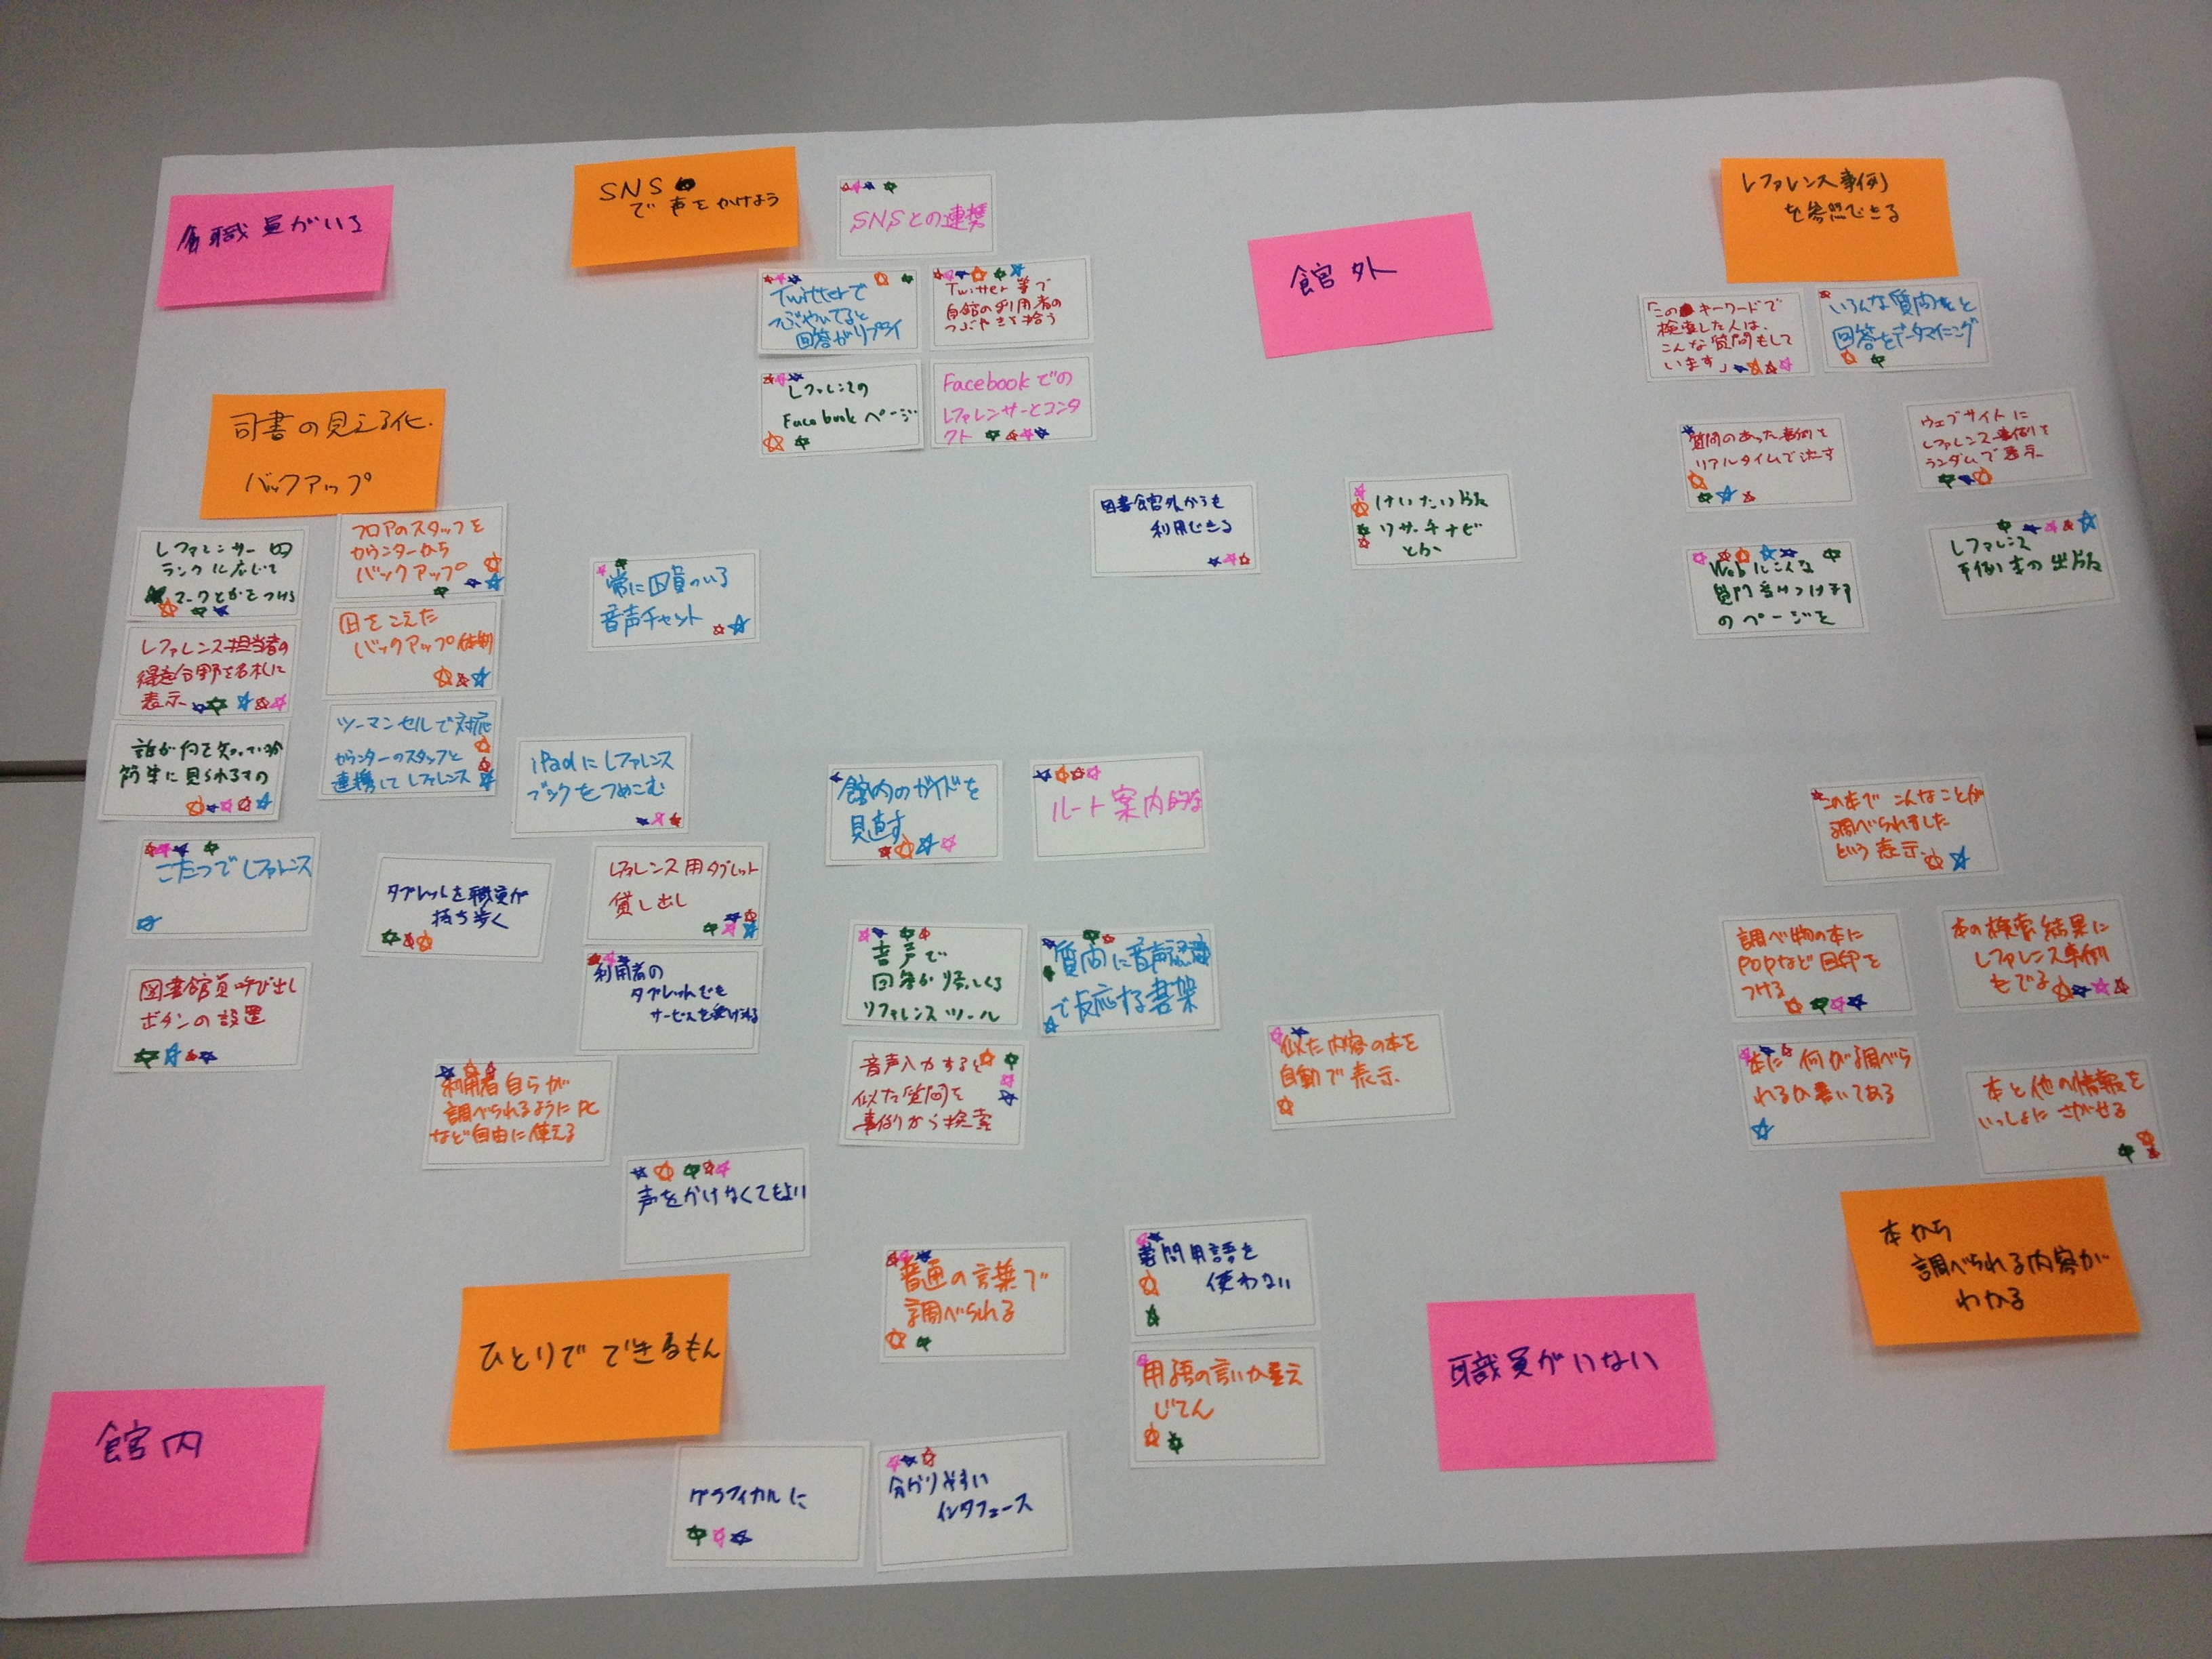 職員がいる
SNS
で声をかけよう
SNSとの連携
Twitterで
つぶやいてると
回答がリプライ
Twitter等で
自館の利用者の
つぶやきを拾う
レファレンスの
Facebookページ
Facebookでの
レファレンサーとコンタ
クト
館外
レファレンス事例
を参照できる
「このキーワードで
検索した人は、
こんな質問もして
います」
いろんな質問と
回答をデータマイニング
質問のあった事例を
リアルタイムで流す
ウェブサイトに
レファレンス事例を
ランダムで表示
Webにこんな
質問受けつけます
のページを
レファレンス
事例本の出版
図書館外からも
利用できる
けいたい版
リサーチナビ
とか
司書の見える化
バックアップ
レファレンサー
ランクに応じて
マークとかをつける
フロアのスタッフを
カウンターから
バックアップ
レファレンス担当者の
得意分野を名札に
表示
をこえた
バックアップ体制
誰が何を知っているか
簡単に見られるもの
ツーマンセルで対応
カウンターのスタッフと
連携してレファレンス
常に 員のいる
音声チャット
iPadにレファレンス
ブックをつめこむ
こたつでレファレンス
タブレットを職員が
持ち歩く
レファレンス用タブレット
貸し出し
利用者の
タブレットでも
サービスを受けれる
図書館員呼び出し
ボタンの設置
利用者自らが
調べられるようにPC
など自由に使える
声をかけなくてもよい
館内のガイドを
見直す
ルート案内的な
音声で
回答が帰ってくる
リファレンスツール
質問に音声認識
で反応する書架
音声入力すると
似た質問を
事例から検索
似た内容の本を
自動で表示
この本でこんなことが
調べられました
という表示
調べ物の本に
POPなど目印を
つける
本の検索結果に
レファレンス事例
もでる
本に何が調べら
れるか書いてある
本と他の情報を
いっしょにさがせる
本から
調べられる内容が
わかる
ひとりでできるもん
普通の言葉で
調べられる
専門用語を
使わない
用語の言いかえ
じてん
職員がいない
館内
グラフィカルに
分かりやすい
インタフェース